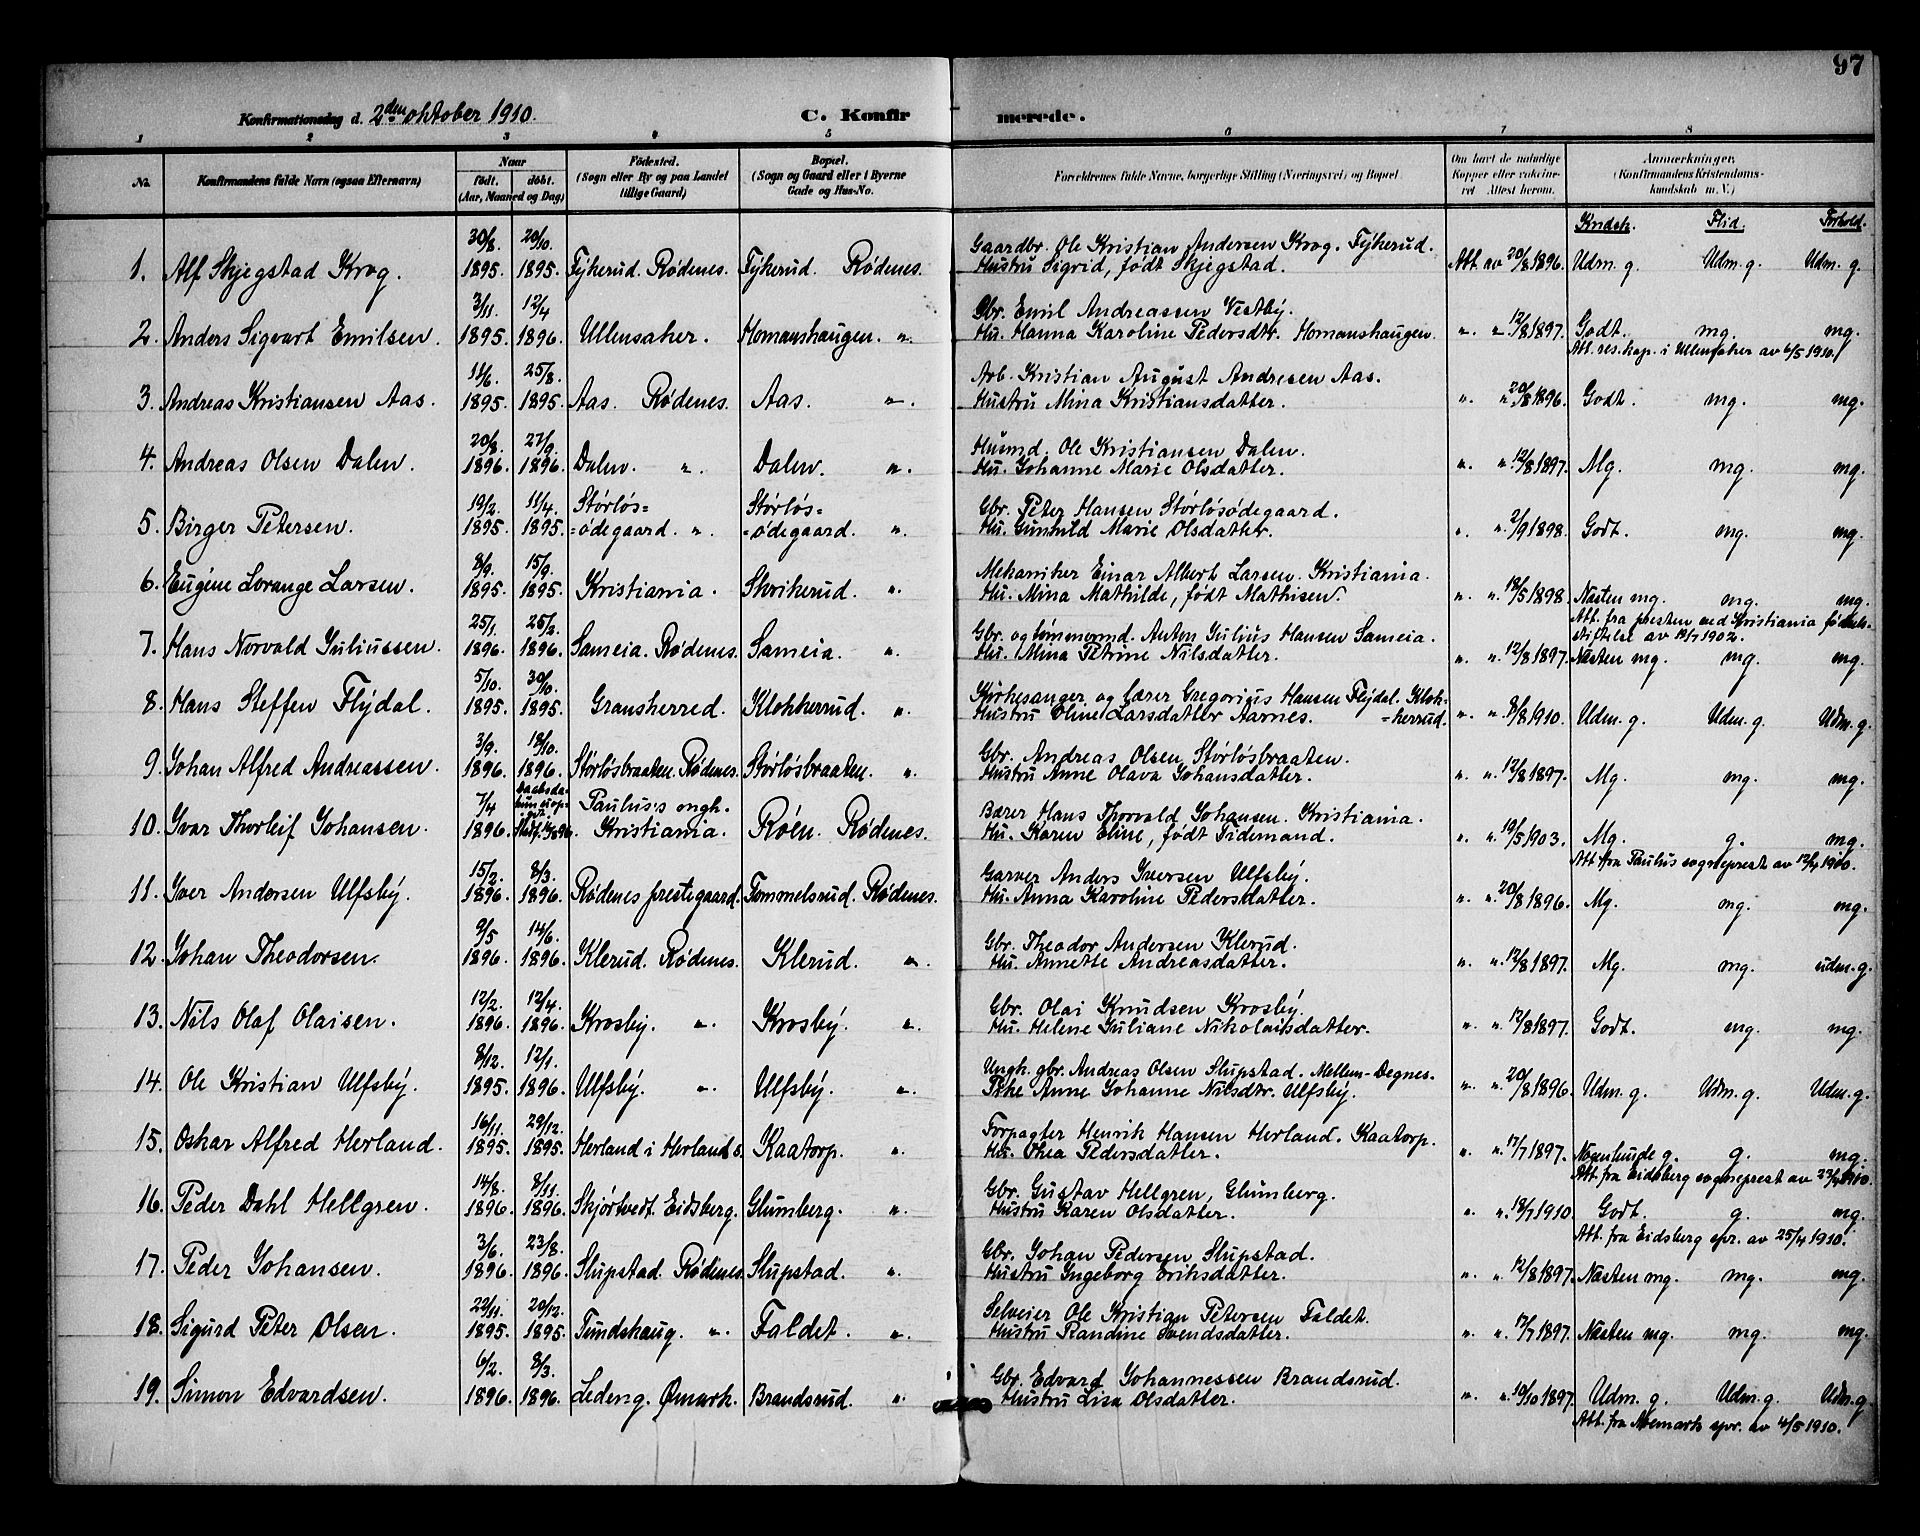 97
Konfirmationsdag d. 2den oktober 1910. C. Konfirmerede.
1 2 3 4 5 6 7 8
No. Konfirmandens fulde Navn (ogsaa Efternavn) Naar født. døbt. (Aar, Maaned og Dag) Fødested. (Sogn eller By og paa Landet tillige Gaard) Bopæl. (Sogn og Gaard eller i Byerne Gade og Hus-No. Forældrenes fulde Navne, borgerlige Stilling (Næringsvei) og Bopæl. Om havt de naturlige Kopper eller vakcineret Attest herom. Anmærkninger. (Konfirmandens Kristendomskundskab m. V.)
Kndsk. Flid. Forhold.
30/8. 20/10. Gaardbr. Ole Kristian Andersen Krog. Fijkerud.
1. Alf Skjegstad Krog. 1895. 1895. Fijkerud. Rødenes. Fijkerud. Rødenes. Hustru Sigrid, født Skjegstad. Att. av 20/8 1896. Udm. g. Udm. g. Udm. g.
3/11. 12/4 Gbr. Emil Andreassen Vestby.
2. Anders Sigvart Emilsen. 1895. 1896. Ullensaker. Homanshaugen. „ Hu. Hanna Karoline Pedersdtr. Homanshaugen. „ „ 12/8 1897. Godt. mg. mg.
Att. res. kap. i Ullensaker av 6/5 1910.
11/6. 25/8. Arb. Kristian August Andresen Aas.
3. Andreas Kristiansen Aas. 1895. 1895. Aas. Rødenes. Aas. „ Hustru Mina Kristiansdatter. „ „ 20/8 1896. Godt. mg. mg.
20/8. 27/9. Husmd. Ole Kristiansen Dalen.
4. Andreas Olsen Dalen. 1896. 1896. Dalen. „ Dalen. „ Hu. Johanne Marie Olsdatter. „ „ 12/8 1897. Mg. mg. mg.
19/2. 11/4. Størløs= Størløs= Gbr. Peter Hansen Størløsødegaard.
5. Birger Petersen. 1895. 1895. =ødegaard. „ =ødegaard. „ Hu. Gunhild Marie Olsdatter. „ „ 2/9 1898. Godt. mg. mg.
8/9. 15/9. Mekaniker Einar Albert Larsen. Kristiania.
6. Eugéne Lorange Larsen. 1895. 1895. Kristiania. Skrikerud. „ Hu. Mina Mathilde, født Mathisen. „ „ 18/5 1898. Næsten mg. mg. mg.
Att. fra presten ved Kristiania fødsels-
25/1. 25/3. Gbr. og tømmermd. Anton Julius Hansen Sameia. stiftelse av 14/7 1902.
7. Hans Norvald Juliussen. 1896. 1896. Sameia. Rødenes. Sameia. „ Hu. Mina Petrine Nilsdatter. „ „ 12/8 1897. Næsten mg. mg. mg.
5/10. 30/10. Kirkesanger og lærer Gregorius Hansen Flijdal. Klok-
8. Hans Steffen Flijdal. 1895. 1895. Gransherred. Klokkerud. „ Hustru Oline Larsdatter Aarnes. =kerrud. „ „ 8/8 1910. Udm. g. Udm. g. Udm. g.
3/9. 18/10. Gbr. Andreas Olsen Størløsbraaten.
9. Johan Alfred Andreassen. 1896. 1896. Størløsbraaten. Rødenes. Størløsbraaten. „ Hustru Anne Olava Johansdatter. „ „ 12/8 1897. Mg. mg. mg.
7/4 Paulus's mgh. Bærer Hans Thorvald Johansen. Kristiania.
10. Ivar Thorleif Johansen. 1896. Kristiania. Røen. Rødenes. Hu. Karen Eline, født Tidemand. „ „ 19/5 1903. Mg. g. mg.
Att. fra Paulus sogneprest av 12/4 1910.
15/2. 8/3. Garver Anders Iversen Ulfsby.
11. Iver Andersen Ulfsby. 1896. 1896. Rødenes prestegaard. Tommelsrud. Rødenes. Hu. Anna Karoline Pedersdatter. „ „ 20/8 1896. Mg. mg. mg.
9/5 14/6. Gbr. Theodor Andersen Klerud.
12. Johan Theodorsen. 1896. 1896. Klerud. Rødenes. Klerud. „ Hu. Annette Andreasdatter. „ „ 12/8 1897. Mg. mg. udm. g.
12/2. 12/4. Gbr. Olai Knudsen Krosby.
13. Nils Olaf Olaisen. 1896. 1896. Krosby. „ Krosby. „ Hu. Helene Juliane Nikolaisdatter. „ „ 12/8 1897. Godt. mg. mg.
8/12. 12/1. Ungk. gbr. Andreas Olsen Slupstad. Mellem-Degnes.
14. Ole Kristian Ulfsby. 1895. 1896. Ulfsby. „ Ulfsby. „ Pike Anne Johanne Nilsdtr. Ulfsby. „ „ 20/8 1896. Udm. g. Udm. g. Udm. g.
16/11. 29/12. Forpagter Henrik Hansen Herland. Kaatorp.
15. Oskar Alfred Herland. 1895. 1895. Herland i Herland s. Kaatorp. „ Hu. Thea Pedersdatter. „ „ 17/7 1897. Nogenlunde g. g. mg.
Att. fra Eidsberg sogneprest av 23/4 1910.
14/8. 8/11. Gbr. Gustav Hellgren, Glumberg.
16. Peder Dahl Hellgren. 1896. 1896. Skjørtvedt. Eidsberg. Glumberg. „ Hustru Karen Olsdatter. „ „ 18/7 1910. Godt. g. mg.
Att. fra Eidsberg spr. av 25/4 1910.
3/6. 23/8. Gbr. Johan Pedersen Slupstad.
17. Peder Johansen. 1896. 1896. Slupstad. Rødenes. Slupstad. „ Hustru Ingeborg Eriksdatter. „ „ 12/8 1897. Næsten mg. mg. mg.
22/11. 20/12. Selveier Ole Kristian Petersen Faldet.
18. Sigurd Peter Olsen. 1895. 1895. Tundshaug. „ Faldet. „ Hustru Randine Svendsdatter. „ „ 17/7 1897. Næsten mg. mg. mg.
6/2. 8/3. Gbr. Edvard Johannessen Brandsrud.
19. Simon Edvardsen. 1896. 1896. Ledeng. Ømark. Brandsrud. „ Hustru Lisa Olsdatter. „ „ 19/10 1897. Udm. g. Udm. g. Udm. g.
Att. fra Aremark spr. av 4/5 1910.